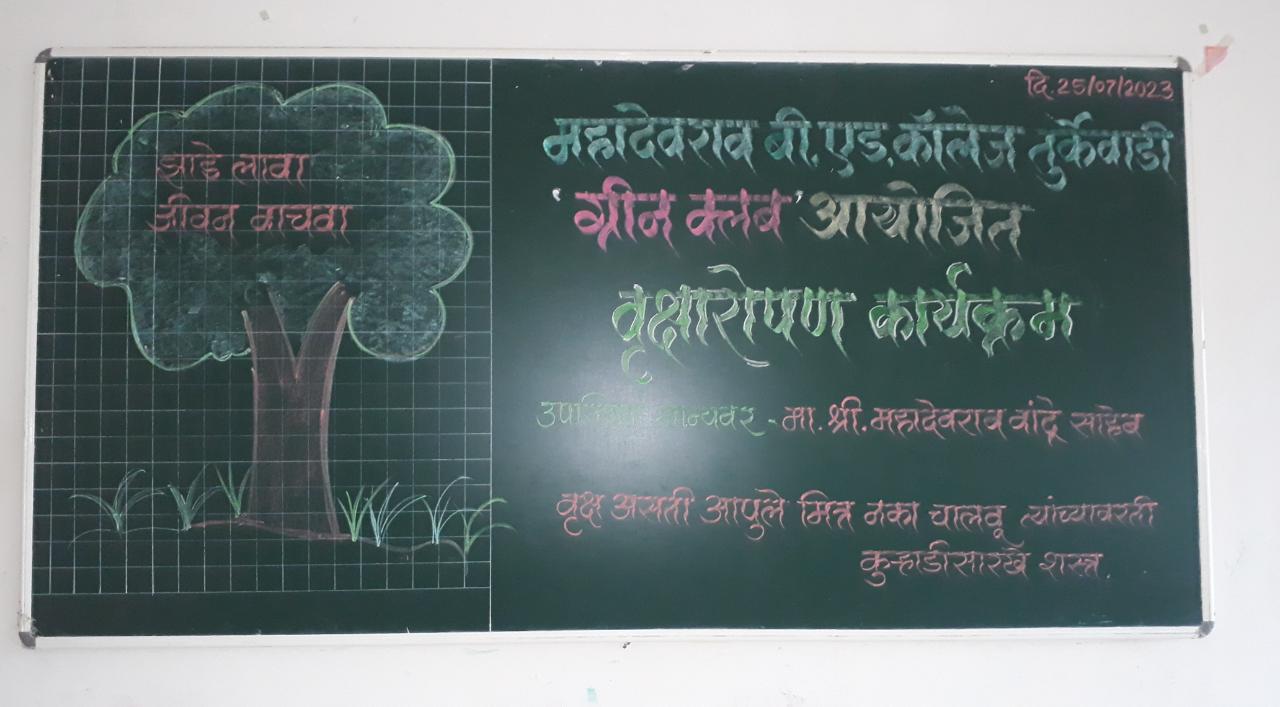 झाडे लावा
जीवन वाचवा
दि. 25/07/2023
महादेवराव बी.एड.कॉलेज तुर्केवाडी
'ग्रीन क्लब' आयोजित
वृक्षारोपण कार्यक्रम
उपस्थित मान्यवर - मा. श्री. महादेवराव वांद्रे साहेब
वृक्ष असती आपुले मित्र नका चालवू त्यांच्यावरती
कुऱ्हाडीसारखे शस्त्र.